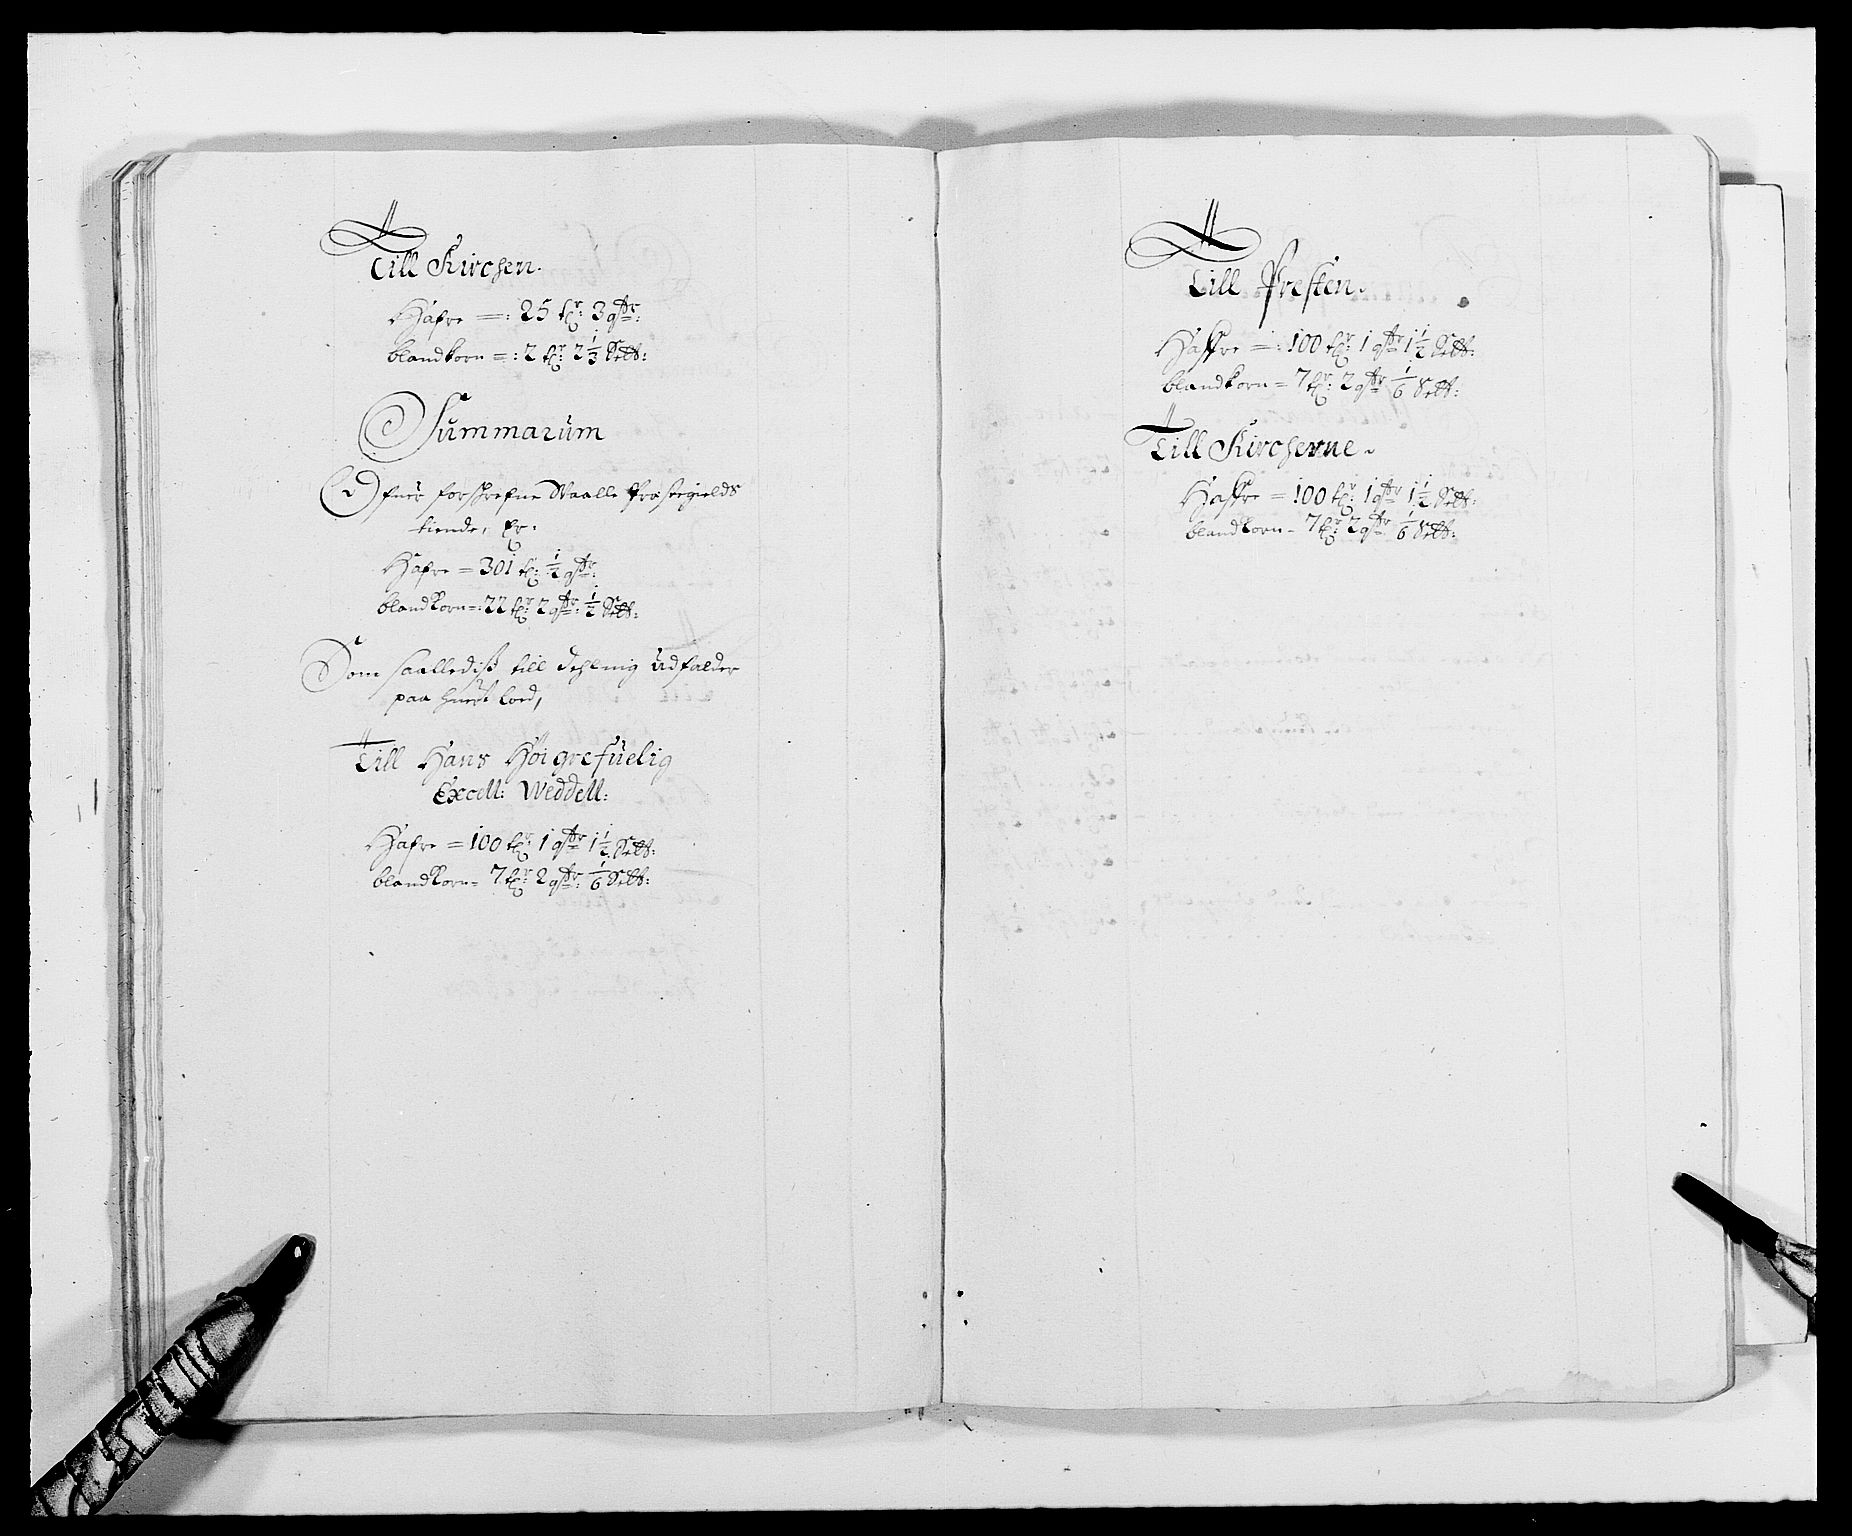 Till Kirchen.
Hafre =: 25 tr: 3 qtr:
blandkorn =: 2 tr: 2 1/3 Sett:
Summarum
Ofuer forschrefne Waalle Præstegields
tiende, Er:
Hafre = 301 tr: 1/2 qtr:
blandkorn =: 22 tr: 2 qtr: 1/2 Sett:
Som saalledisß till dehling üdfalder
paa huert loed,
Till Hans Høigrefuelig
Excell: Weddell:
Hafre = 100 tr: 1 qtr 1 1/2 Sett:
blandkorn = 7 tr: 2 qtr: 1/6 Sett:
Till Presten.
Haffre =: 100 tr: 1 qtr 1 1/2 Sett:
blandkorn = 7 tr: 2 qtr 1/6 Sett:
Till Kircherne.
Haffre = 100 tr: 1 qtr 1 1/2 Sett:
blandkorn - 7 tr: 2 qtr: 1/6 Sett: